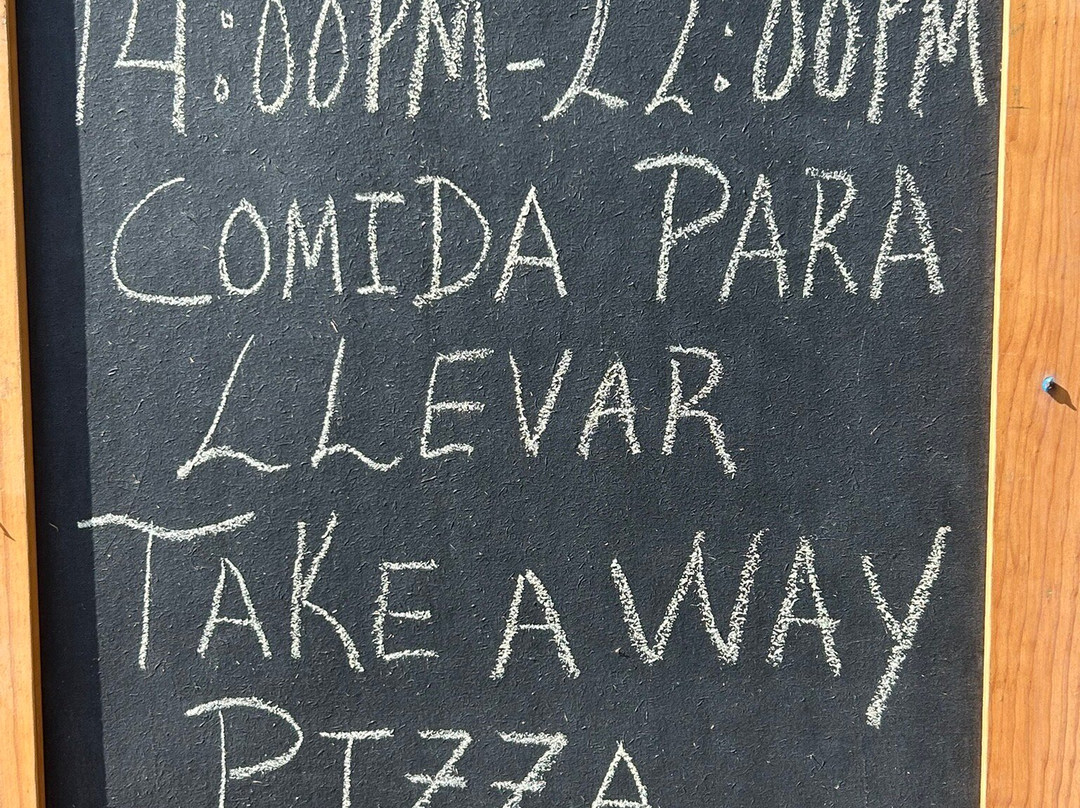 14:00PM-22:00PM
COMIDA PARA
LLEVAR
TAKE AWAY
PIZZA